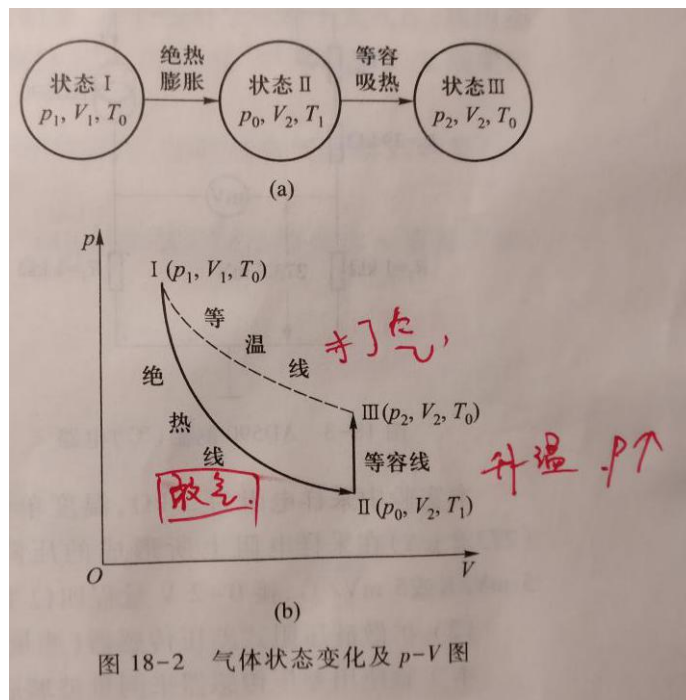 状态Ⅰ
p₁, V₁, T₀
绝热
膨胀
状态Ⅱ
p₀, V₂, T₁
等容
吸热
状态Ⅲ
p₂, V₂, T₀
(a)
p
Ⅰ(p₁, V₁, T₀)
等温线
绝热线
放气
Ⅲ(p₂, V₂, T₀)
等容线
升温 p↑
Ⅱ(p₀, V₂, T₁)
O
V
(b)
图 18-2 气体状态变化及 p-V 图